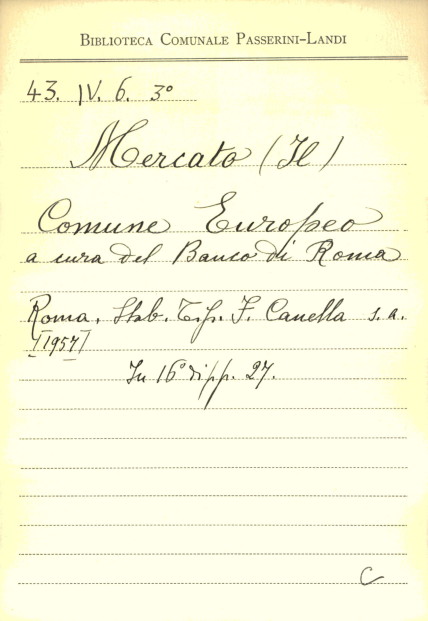 BIBLIOTECA COMUNALE PASSERINI-LANDI
43. IV. 6. 3°
Mercato (Il)
Comune Europeo
a cura del Banco di Roma
Roma. Stab. Tip. F. Canella s. a.
[1957]
In 16° di pp. 27.
C